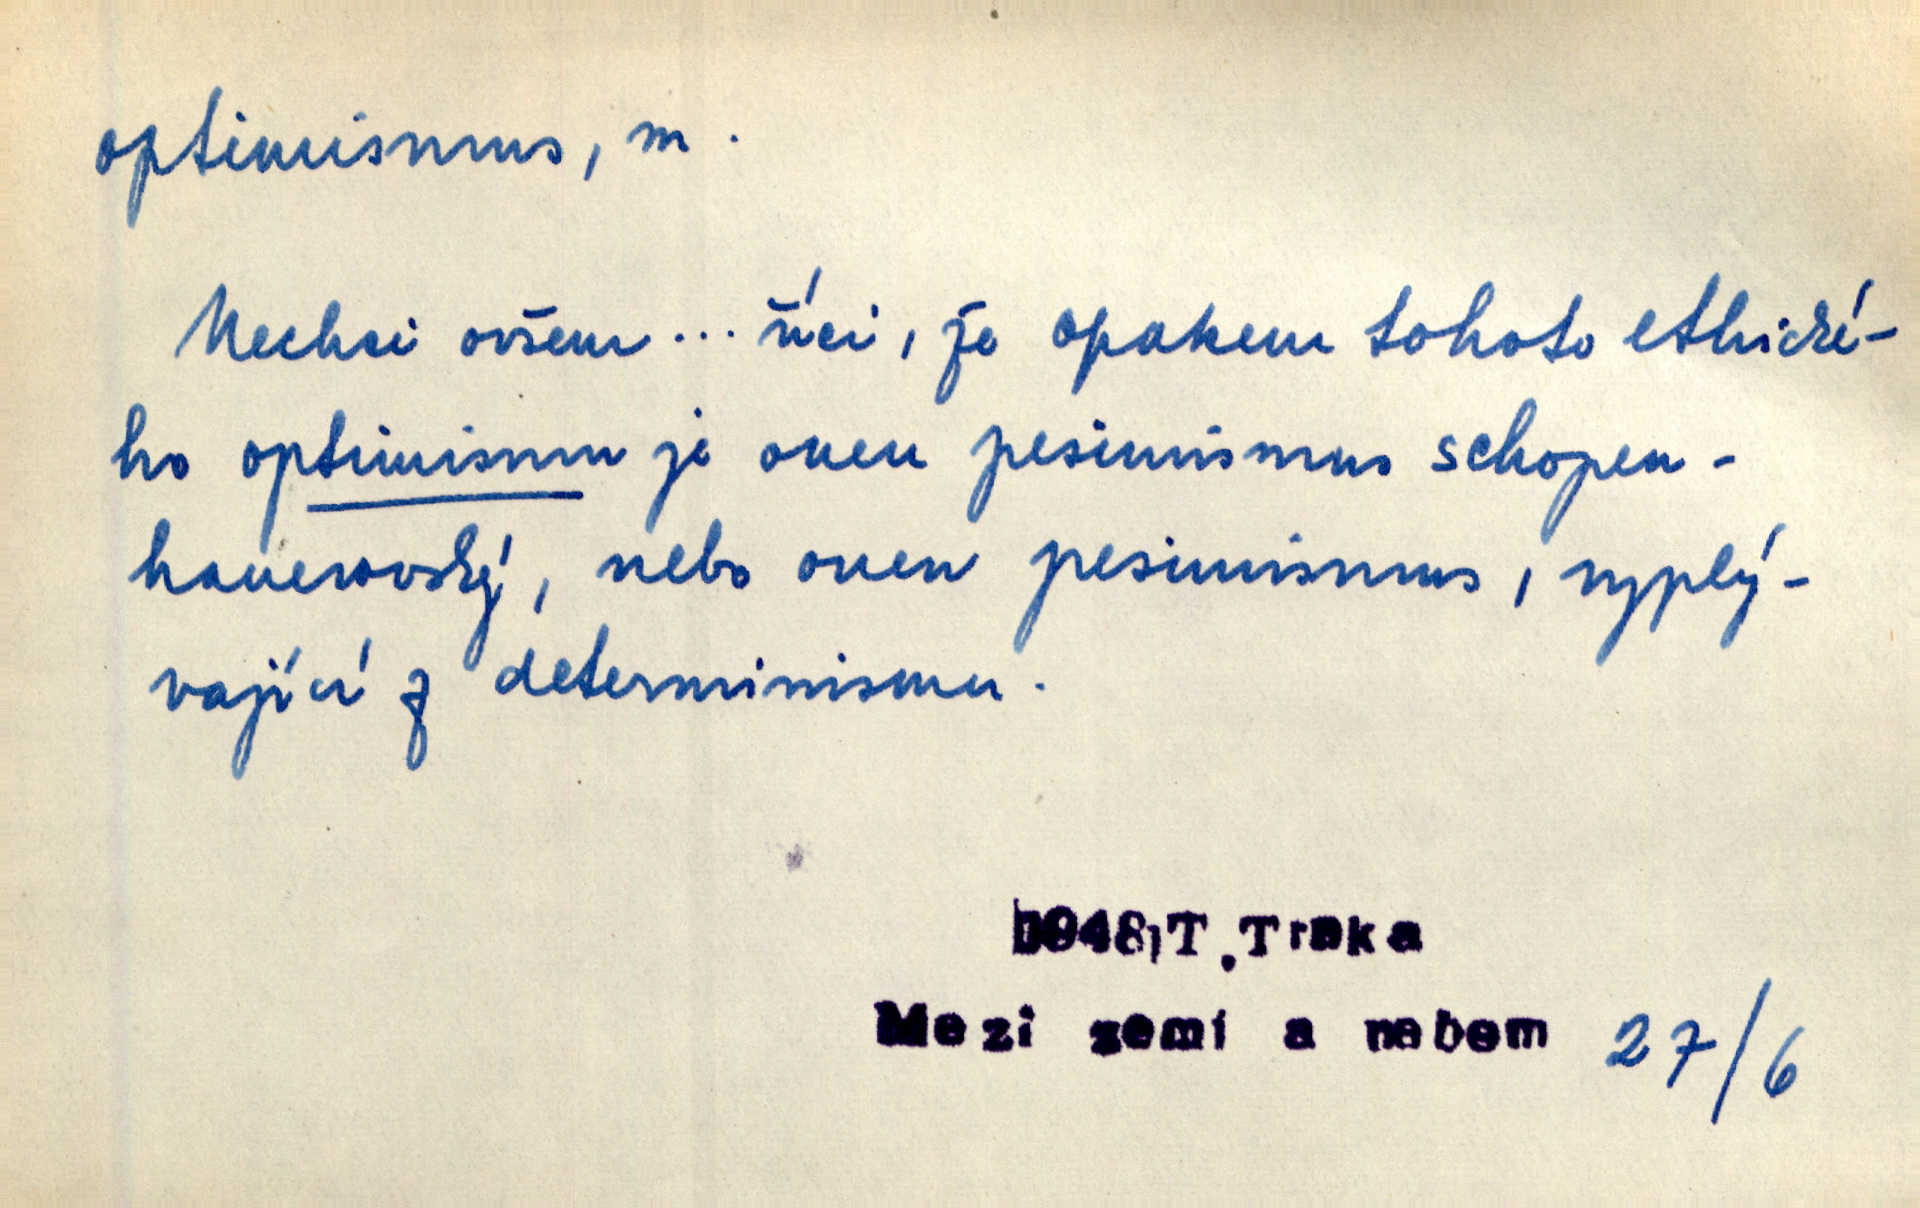 optimismus, m.
Nechci ovšem ... říci, že opakem tohoto ethické-
ho optimismu je onen pesimismus schopen-
hauerovský, nebo onen pesimismus, vyplý-
vající z determinismu.
1948, T. Trnka
Mezi zemí a nebem 27/6